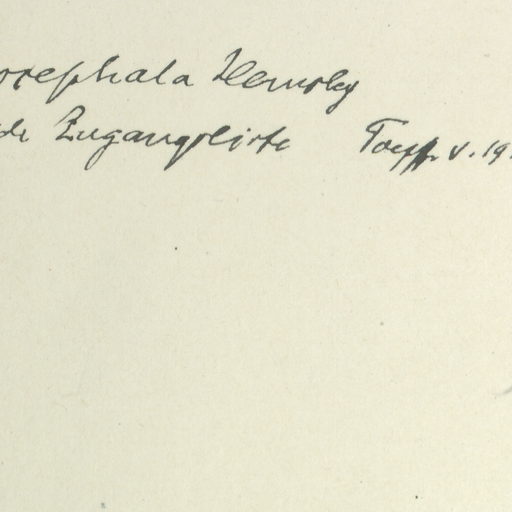 ocephala Hemsley
de Zugangsliste Toepf. V. 19